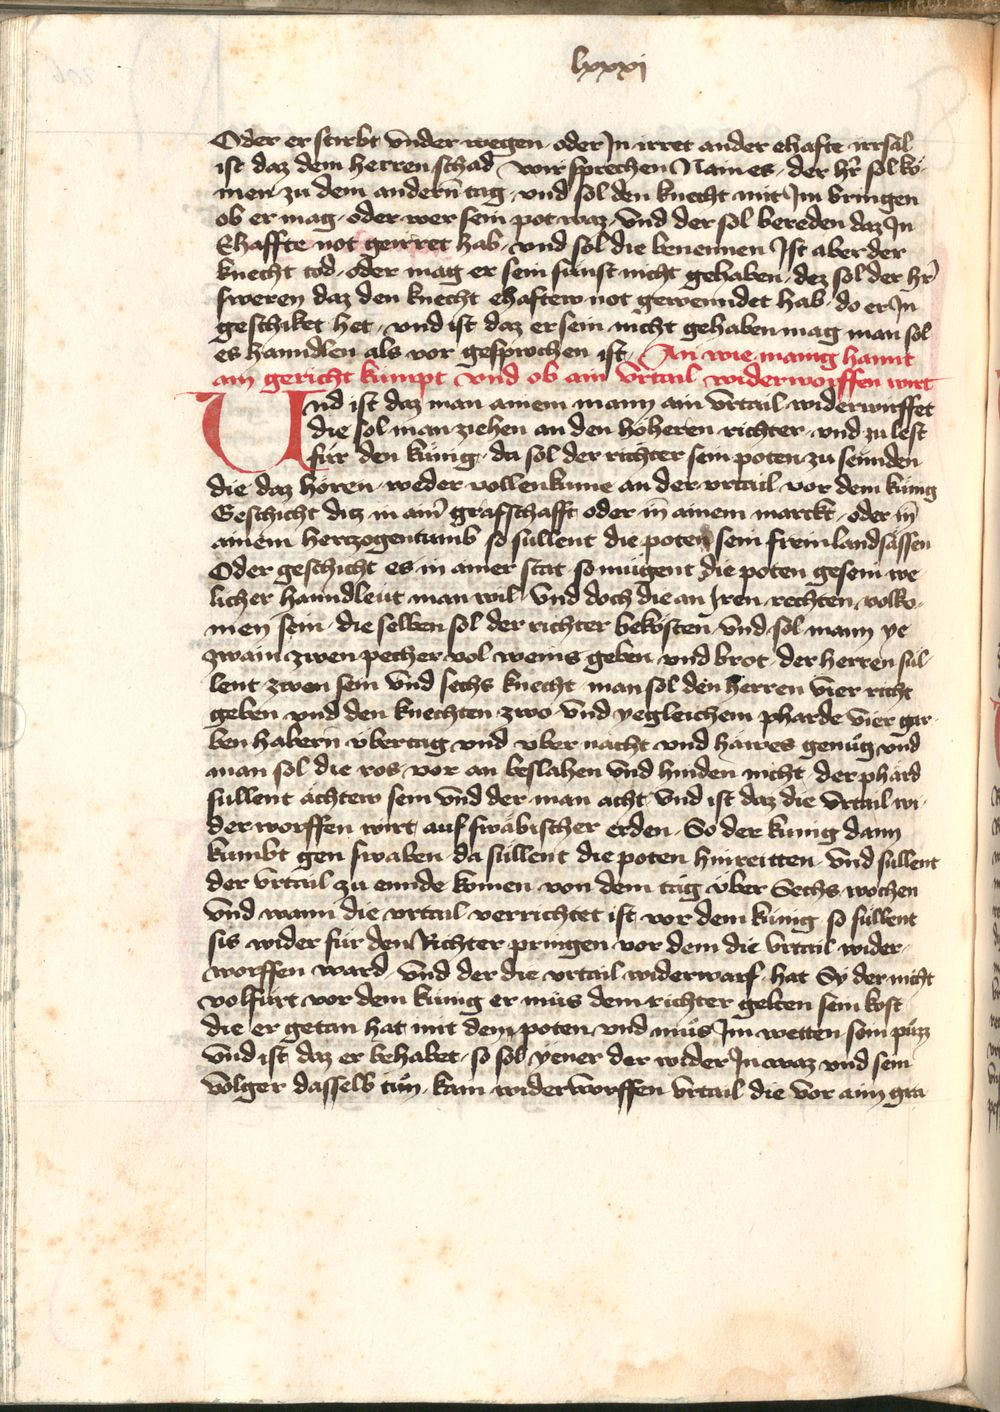 lxxxi
Oder er stirbt vnder wegen oder In irret ander ehafte irrsäl
ist daz dem herren schad wir sprechen Nain es der hr̄ sol ko-
men zu dem andern tag vnd sol den knecht mit Im bringen
ob er mag oder wer sein pot waz vnd der sol bereden daz In
Ehaffte not geirret hab vnd sol die benennen Ist aber der
knecht tod oder mag er sein sunst nicht gehaben dez sol der hr̄
sweren daz den knecht ehaftew not gewenndet hab do er In
geschiket het vnd ist daz er sein nicht gehaben mag man sol
es hanndlen als vor gesprochen ist An wie manig hannt
ain gericht kümpt vnd ob ain vrtail widerworffen wirt
Und ist daz man ainem mann ain vrtail widerwirffet
die sol man ziehen an den höheren richter vnd zu lest
für den künig da sol der richter sein poten zu seinden
die daz hören weder vollenkume an der vrtail vor dem künig
Geschicht ditz in ainr̄ grafschafft oder in ainem marckt oder in
ainem hertzogentumb so sullent die poten sein frein landsässen
Oder geschicht es in ainer stat so mügent die poten gesein we-
licher hanndleüt man wil Vnd doch die an Iren rechten volko-
men sein die selben sol der richter bekosten vnd sol mann ye
zwain zwen pecher vol weins geben vnd brot der herren sul-
lent zwen sein vnd sechs knecht man sol den herren vier richt
geben vnd den knechten zwo vnd yegleichem pharde vier gar-
ben habern vbertag vnd vber nacht vnd häwes genüg vnd
man sol die ros vor an beslahen vnd hinden nicht der phärd
sullent ächtew sein vnd der man acht vnd ist daz die vrtail wi-
der worffen wirt auf swäbischer erden So der kunig dann
kumbt gen swaben da süllent die poten hinreitten vnd sullent
der vrtail zu ennde komen von dem tag über Sechs wochen
vnd wann die vrtail verrichtet ist vor dem künig so süllent
sis wider für den Richter pringen vor dem die vrtail wider-
worffen ward vnd der die vrtail widerwarf hat Sy der nicht
volfürt vor dem künig er müs dem richter gelten sein kost
die er getan hat mit dem poten vnd müs Im wetten sein püzz
vnd ist daz er behabet so sol yener der wider In waz vnd sein
volger dasselb tün kain widerworffen vrtail die vor aim gra